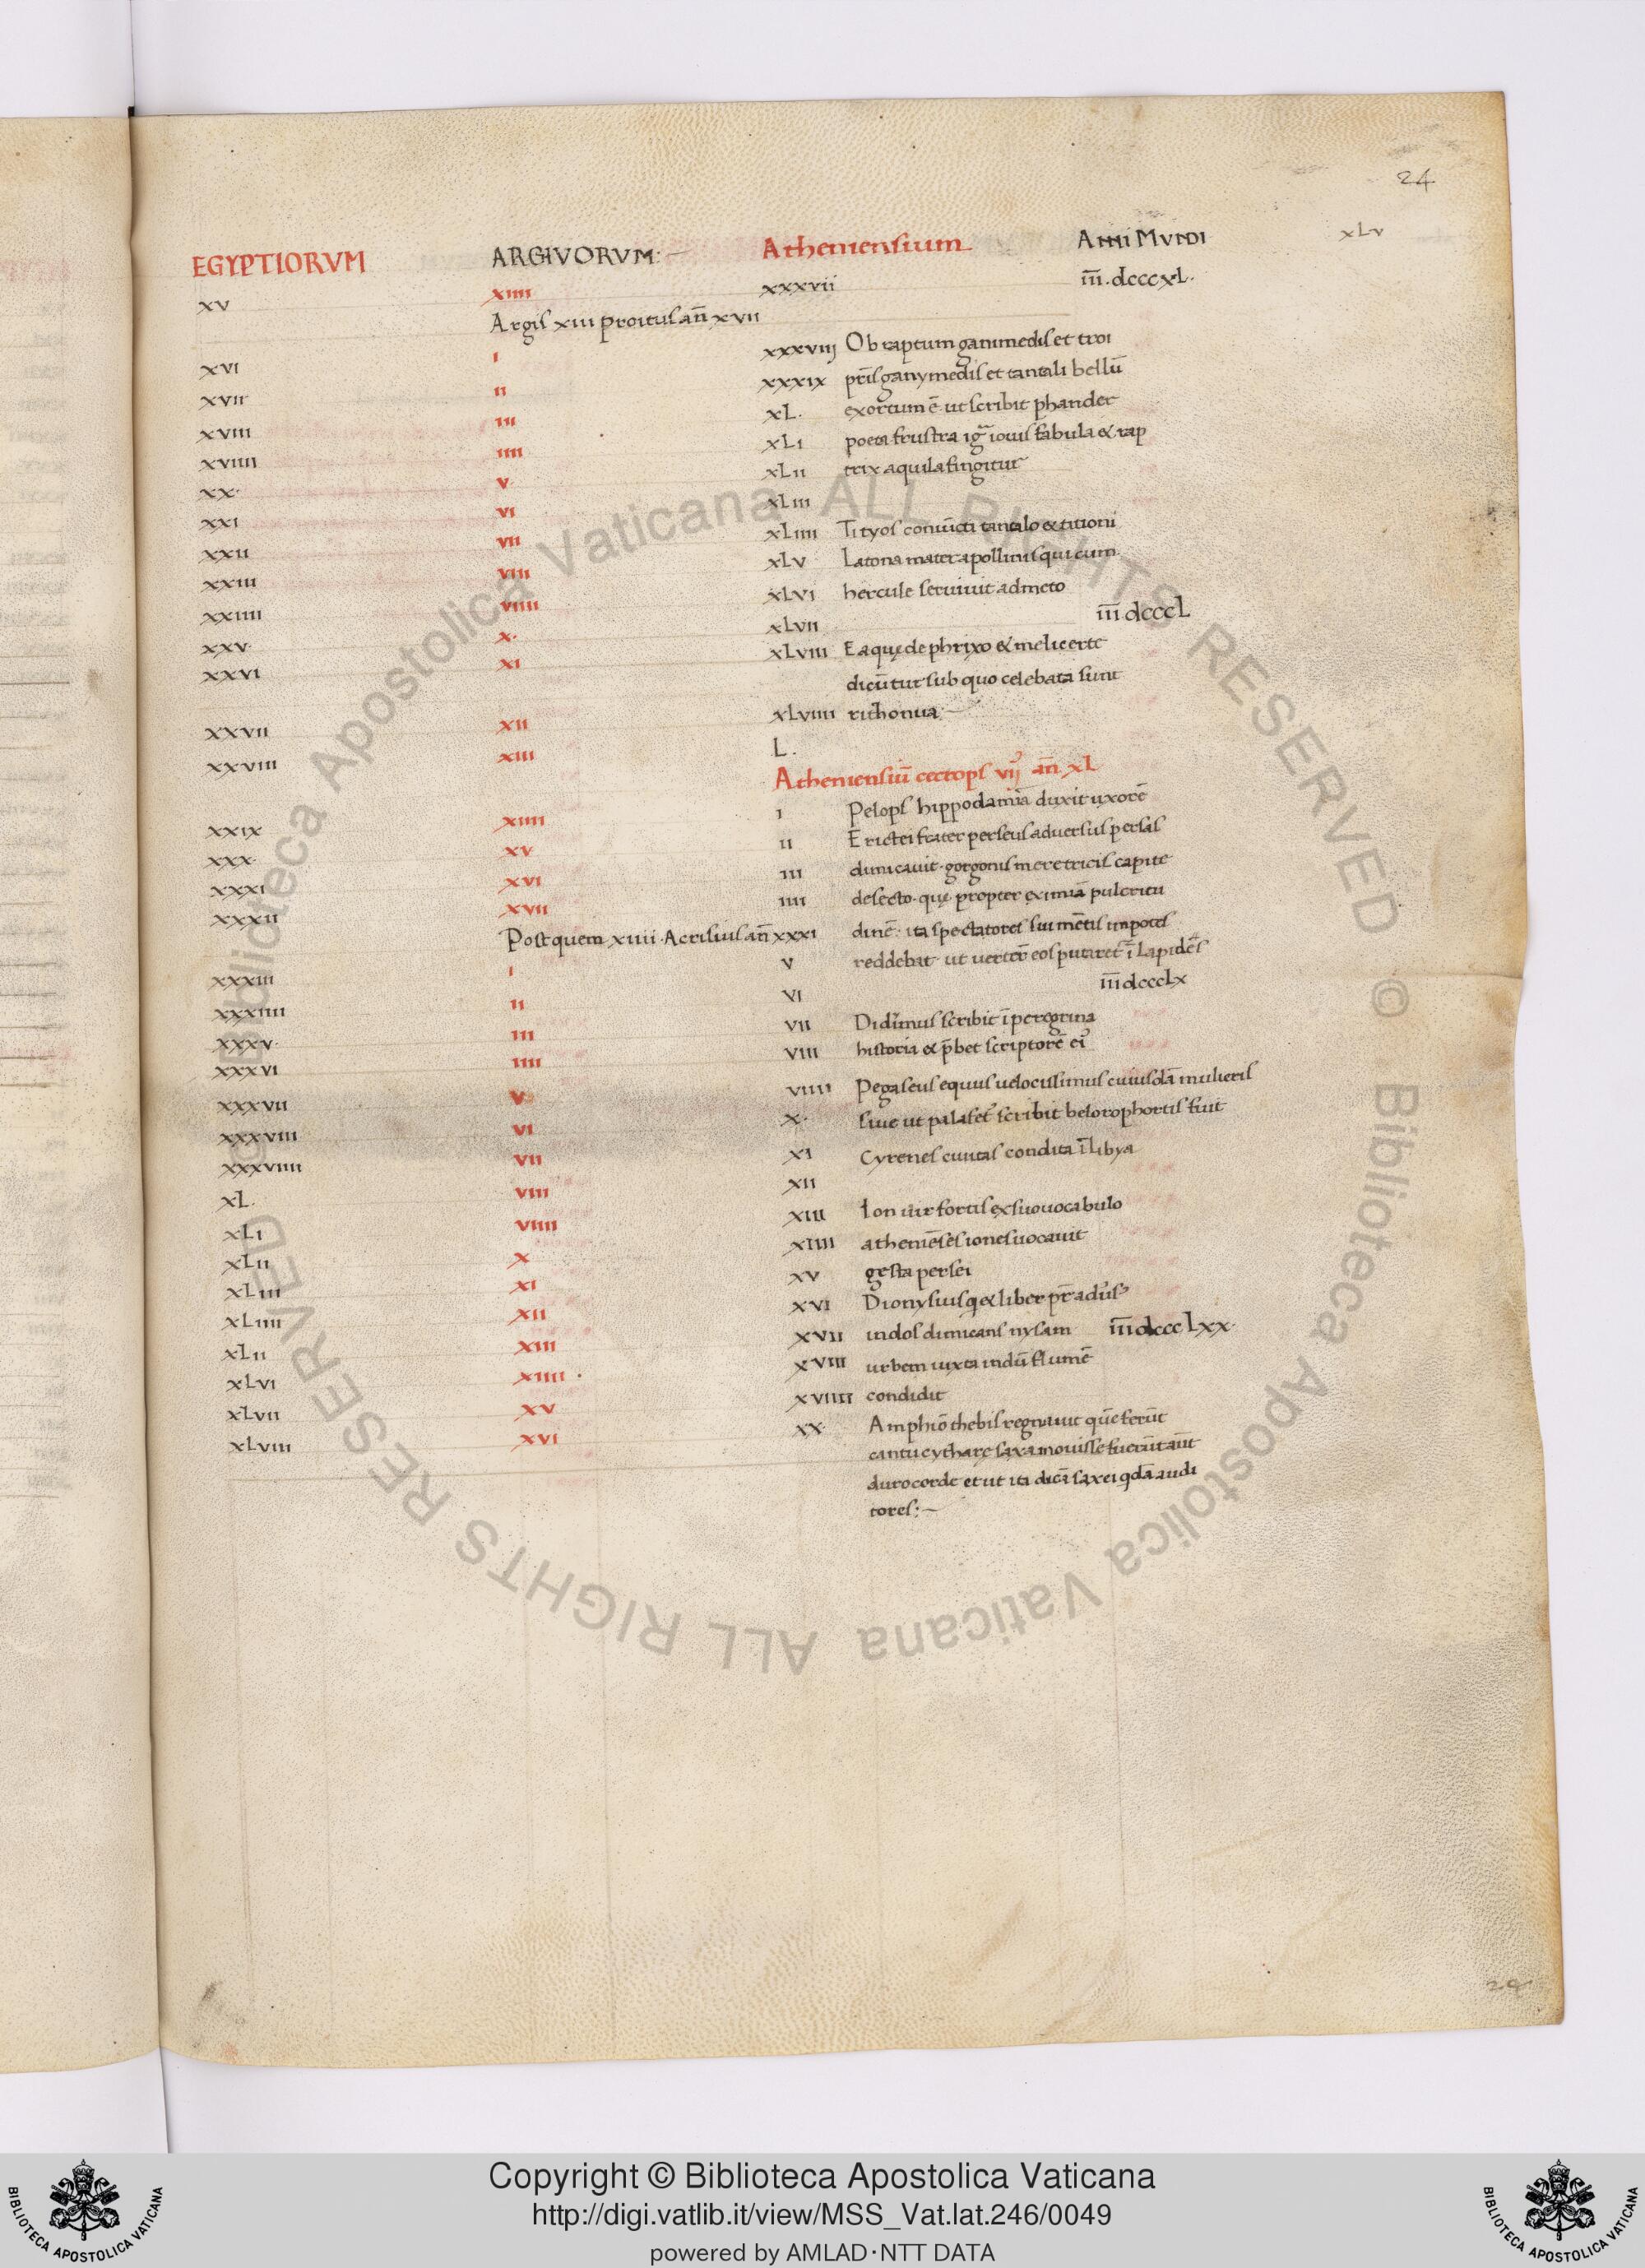 24
xLv
EGYPTIORVM ARGIVORVM: Atheniensium Anni Mundi
xv xiiii xxxvii iii̅.dcccxL.
Argis xiii proitus an̅ xvii
xvi i xxxviii Ob raptum ganimedis et troi
xvii ii xxxix pr̅is ganymedis et tantali bellu̅
xviii iii xL. exortum e̅ ut scribit phander
xviiii iiii xLi poeta frustra igr̅ iouis fabula & rap
xx. v xLii trix aquila fingitur
xxi vi xLiii
xxii vii xLiiii Tityos coniu̅cti tantalo & titioni
xxiii viii xLv Latona mater apollinis qui cum
xxiiii viiii xLvi hercule seruiuit admeto
xxv. x. xLvii iii̅ dcccL
xxvi xi xLviii Ea quę de phrixo & melicerte
dicu̅tur sub quo celebata sunt
xxvii xii xLviiii rithonua:
xxviii xiii L.
Atheniensiu̅ cecrops vii an̅. xL
xxix xiiii i Pelops hippodamia̅ duxit uxore̅
xxx. xv ii Erictei frater perseus aduersus persas
xxxi xvi iii dimicauit. gorgonis meretricis capite
xxxii xvii iiii desecto. quę propter eximia̅ pulcritu
Post quem xiiii. Acrisius an̅ xxxi dine̅. ita spectatores sui me̅tis impotes
xxxiii i v reddebat ut uerter̅ eos putaret̅ i̅ Lapide̅s
xxxiiii ii vi iii̅ dcccLx
xxxv. iii vii Didimus scribit i̅ peregrina
xxxvi iiii viii historia & p̅bet scriptore̅ ei'
xxxvii v viiii Pegaseus equus uelocissimus cuiusda̅ mulieris
xxxviii vi x. siue ut palafet' scribit belorophortis fuit
xxxviiii vii xi Cyrenes ciuitas condita i̅ Libya
xL. viii xii
xLi viiii xiii Ion uir fortis ex suo uocabulo
xLii x xiiii athenie̅ses iones uocauit
xLiii xi xv gesta persei
xLiiii xii xvi Dionysius q & liber pr̅ adu̅s'
xLii xiii xvii indos dimicans nysam iii̅ dcccLxx.
xLvi xiiii. xviii urbem iuxta indu̅ flume̅
xLvii xv xviiii condidit
xLviii xvi xx. Amphio̅ thebis regnauit que̅ feru̅t
cantu cytharę saxa mouisse fueru̅t au̅t
duro corde et ut ita dica̅ saxei qda̅ audi
tores:
Biblioteca Apostolica Vaticana ALL RIGHTS RESERVED © Biblioteca Apostolica Vaticana ALL RIGHTS RESERVED ©
BIBLIOTECA APOSTOLICA VATICANA
Copyright © Biblioteca Apostolica Vaticana
http://digi.vatlib.it/view/MSS_Vat.lat.246/0049
powered by AMLAD·NTT DATA
BIBLIOTECA APOSTOLICA VATICANA